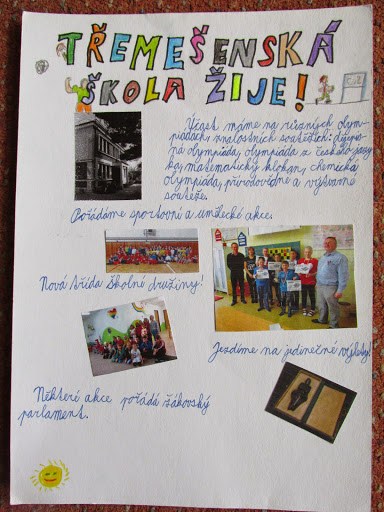 TŘEMEŠENSKÁ
ŠKOLA ŽIJE!
Účast máme na různých olym-
piádách, znalostních soutěžích: dějepis-
ná olympiáda, olympiáda z českého jazy-
ka, matematický klokan, chemická
olympiáda, přírodovědné a výtvarné
soutěže.
Pořádáme sportovní a umělecké akce.
Nová třída školní družiny!
Jezdíme na jedinečné výlety!
Některé akce pořádá žákovský
parlament.